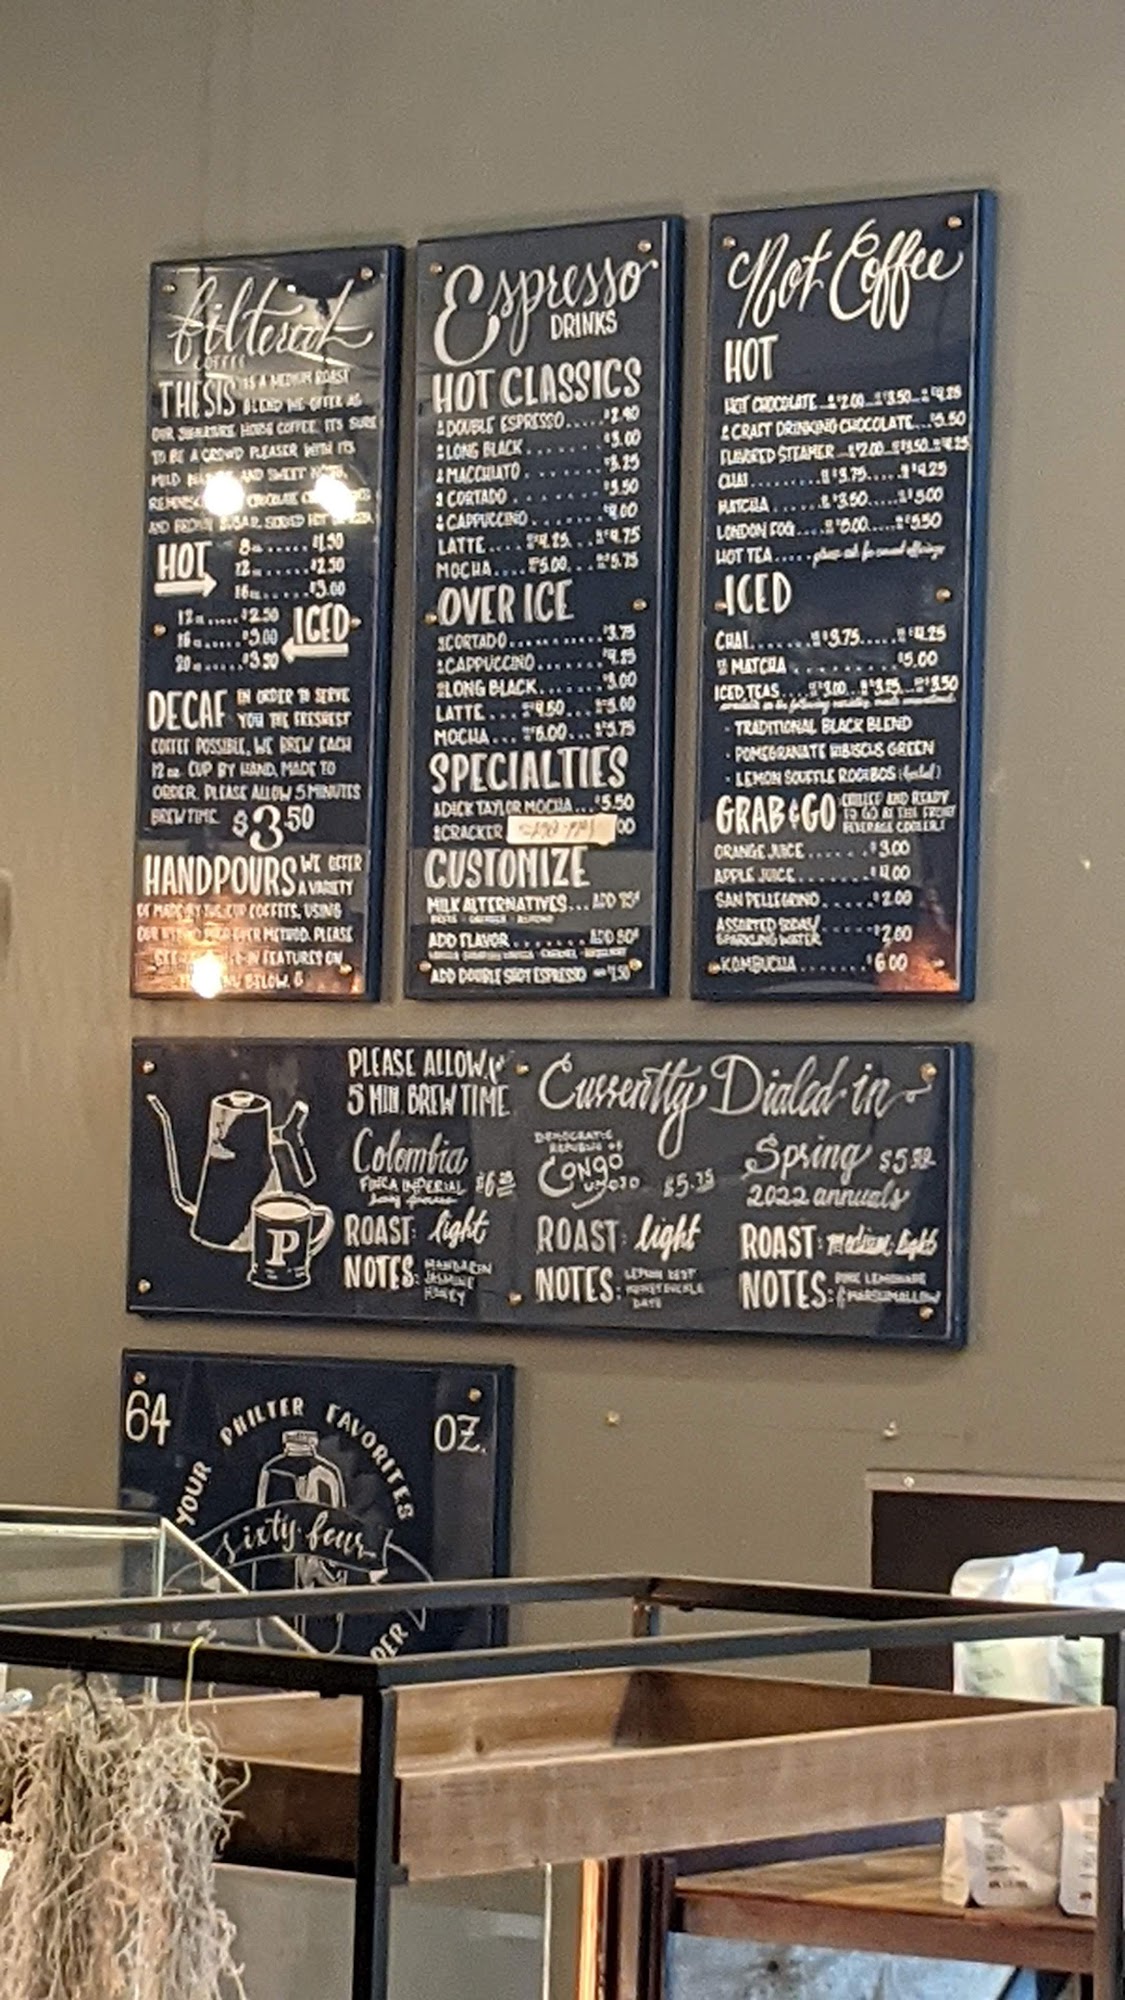 filtered
COFFEE
THESIS IS A MEDIUM ROAST
BLEND WE OFFER AS
OUR SIGNATURE HOUSE COFFEE. IT'S SURE
TO BE A CROWD PLEASER WITH ITS
MILD AND SWEET NOTES
CHOCOLATE
AND BROWN SUGAR. SERVED HOT
HOT
8oz......$1.90
12oz......$2.50
16oz......$3.00
ICED
12oz......$2.50
16oz......$3.00
20oz......$3.50
DECAF IN ORDER TO SERVE
YOU THE FRESHEST
COFFEE POSSIBLE, WE BREW EACH
12 oz. CUP BY HAND, MADE TO
ORDER. PLEASE ALLOW 5 MINUTES
BREW TIME. $3.50
HANDPOURS WE OFFER
A VARIETY
OF MADE BY THE CUP COFFEES, USING
OUR POUR OVER METHOD. PLEASE
IN FEATURES ON
BELOW.
Espresso
DRINKS
HOT CLASSICS
DOUBLE ESPRESSO.....$2.90
LONG BLACK.........$3.00
MACCHIATO.........$3.25
CORTADO.........$3.50
CAPPUCCINO.......$4.00
LATTE....$4.25...$4.75
MOCHA....$5.00...$5.75
OVER ICE
CORTADO.........$3.75
CAPPUCCINO.......$4.25
LONG BLACK.......$3.00
LATTE....$4.50...$5.00
MOCHA...$5.00...$5.75
SPECIALTIES
DICK TAYLOR MOCHA...$5.50
CRACKER 00
CUSTOMIZE
MILK ALTERNATIVES...ADD 75¢
ADD FLAVOR........ADD 50¢
ADD DOUBLE SHOT ESPRESSO $1.50
Not Coffee
HOT
HOT CHOCOLATE...$2.00...$3.50...$4.25
CRAFT DRINKING CHOCOLATE...$5.50
FLAVORED STEAMER...$2.00...$3.50...$4.25
CHAI.........$3.75.....$4.25
MATCHA.......$3.50.....$5.00
LONDON FOG....$5.00.....$5.50
HOT TEA.....please ask for current offerings
ICED
CHAI.......$3.75.....$4.25
MATCHA.........$5.00
ICED TEAS....$3.00...$3.25...$3.50
· TRADITIONAL BLACK BLEND
· POMEGRANATE HIBISCUS GREEN
· LEMON SOUFFLE ROOIBOS (herbal)
GRAB & GO CHILLED AND READY
TO GO AT THE FRONT
BEVERAGE COOLER!
ORANGE JUICE.......$3.00
APPLE JUICE.......$4.00
SAN PELLEGRINO......$2.00
ASSORTED SODAS/
SPARKLING WATER......$2.00
KOMBUCHA........$6.00
PLEASE ALLOW
5 MIN. BREW TIME
Currently Dialed in
Colombia
FINCA IMPERIAL $6.25
ROAST: light
NOTES: MANDARIN
JASMINE
HONEY
DEMOCRATIC
REPUBLIC OF
CONGO
UMOJO $5.75
ROAST: light
NOTES: LEMON ZEST
HONEYSUCKLE
DATE
Spring $5.50
2022 annuals
ROAST: medium-light
NOTES: PINK LEMONADE
& MARSHMALLOW
64 OZ.
YOUR PHILTER FAVORITES
sixty-four